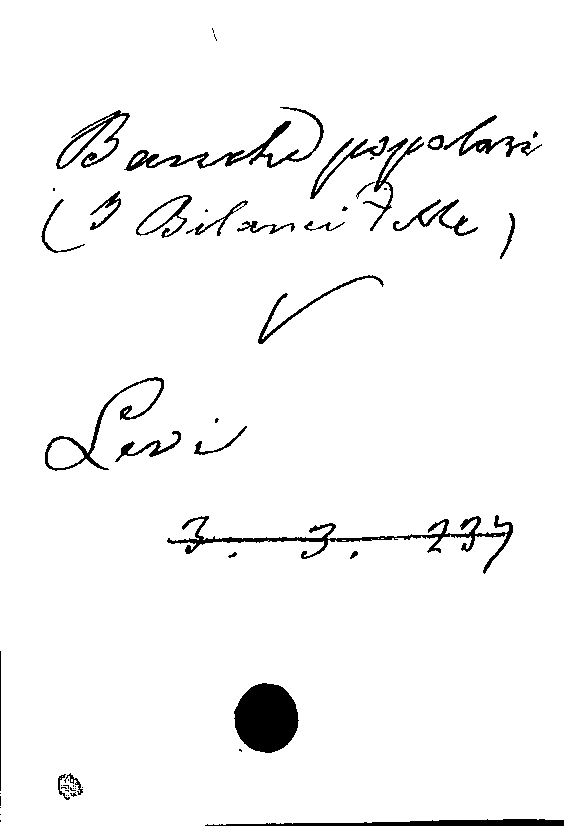 Banche popolari
(3 Bilanci
V
Levi
3. 3. 237